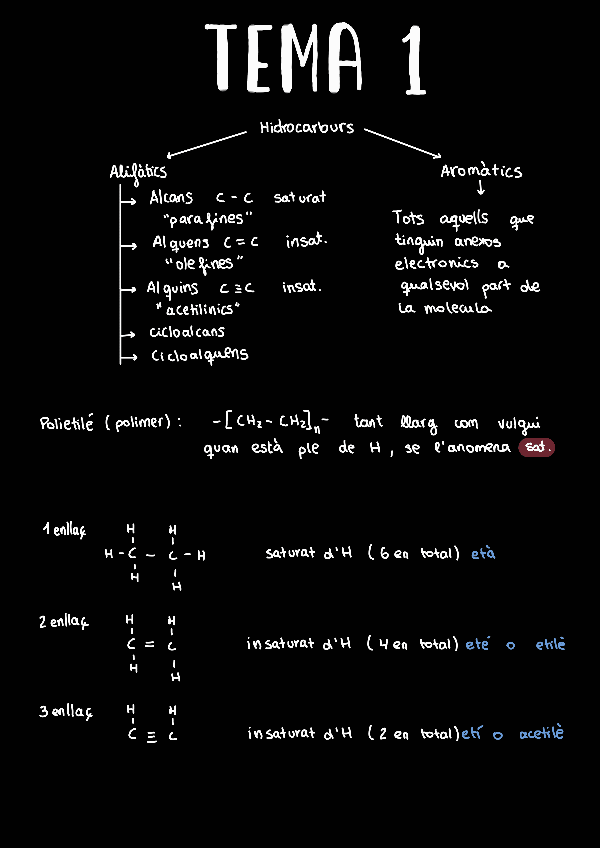 TEMA 1
Hidrocarburs
Alifàtics
Alcans C - C saturat
"parafines"
Alquens C = C insat.
"olefines"
Alquins C ≡ C insat.
"acetilínics"
cicloalcans
Cicloalquens
Aromàtics
Tots aquells que
tinguin anexos
electronics a
qualsevol part de
la molecula
Polietilé (polimer): -[CH₂-CH₂]ₙ- tant llarg com vulgui
quan està ple de H, se l'anomena sat.
1 enllaç
H H
H - C - C - H
H H
saturat d'H (6 en total) età
2 enllaç
H H
C = C
H H
insaturat d'H (4 en total) eté o etilè
3 enllaç
H H
C ≡ C
insaturat d'H (2 en total) etí o acetilè